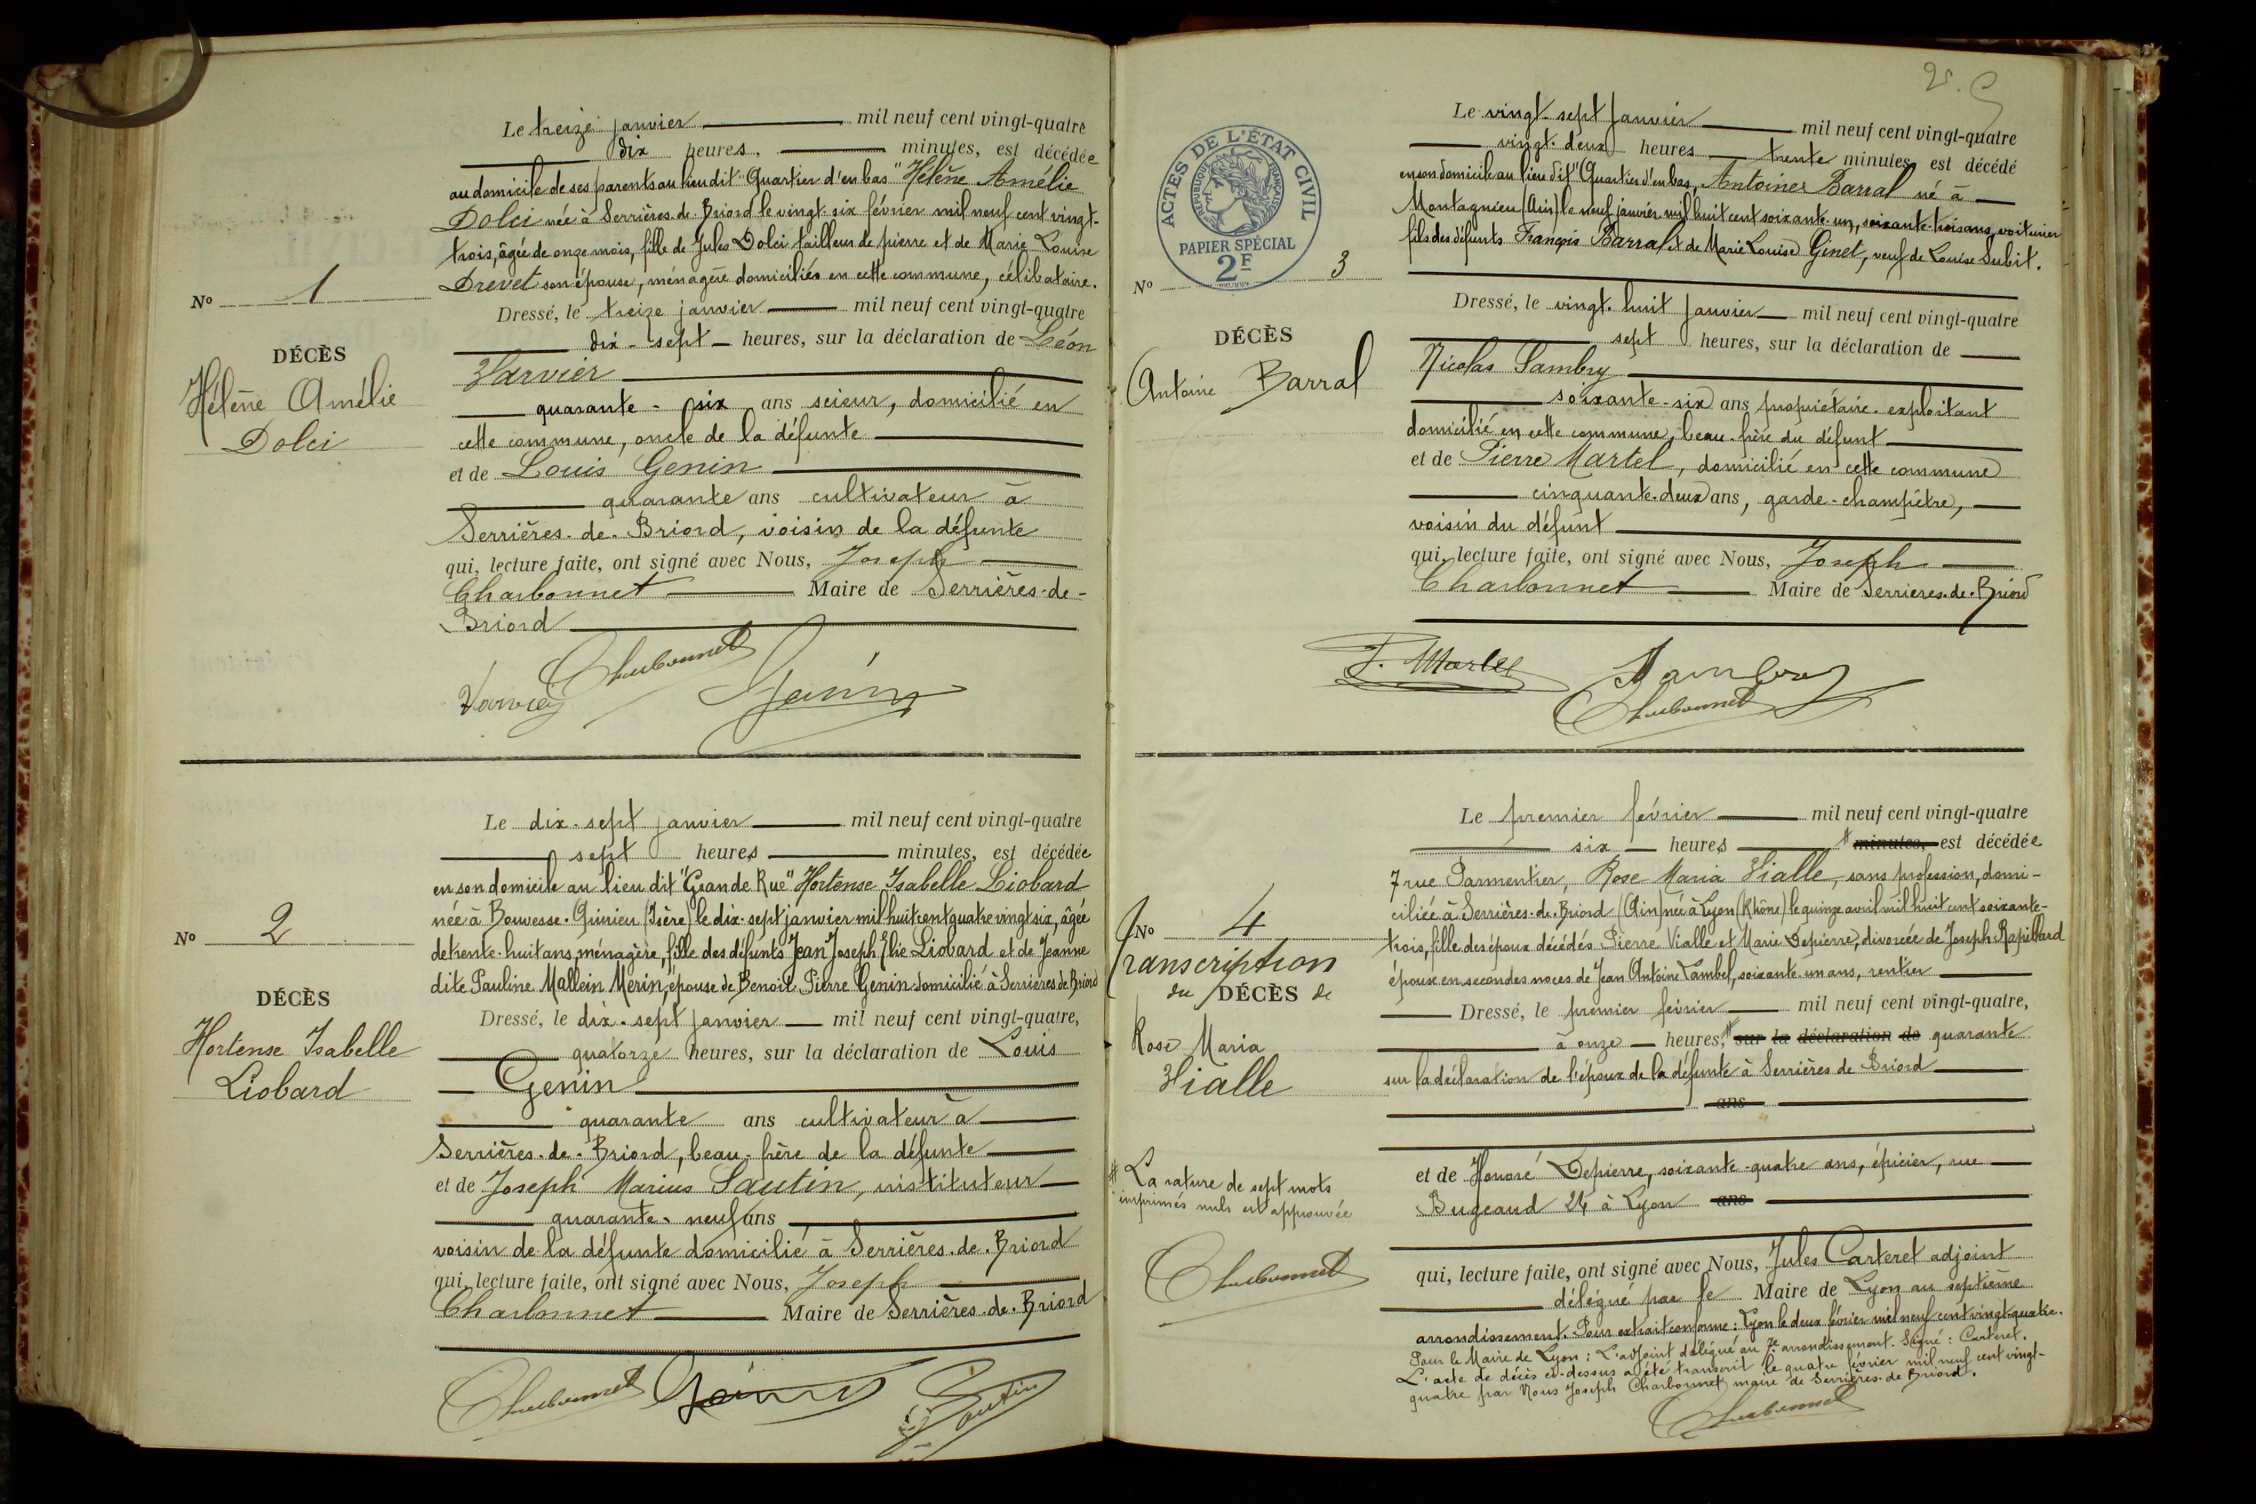 Le treize janvier mil neuf cent vingt-quatre
dix heures, minutes, est décédée
au domicile de ses parents au lieu dit "Quartier d'en bas" Hélène Amélie
Dolci née à Serrières-de-Briord le vingt-six février mil neuf cent vingt-
trois, âgée de onze mois, fille de Jules Dolci tailleur de pierre et de Marie Louise
Drevet son épouse, ménagère domiciliés en cette commune, célibataire.
No 1
Dressé, le treize janvier mil neuf cent vingt-quatre
dix-sept heures, sur la déclaration de Léon
DÉCÈS
Varvier
Hélène Amélie
Dolci
quarante-six ans scieur, domicilié en
cette commune, oncle de la défunte
et de Louis Genin
quarante ans cultivateur à
Serrières-de-Briord, voisin de la défunte
qui, lecture faite, ont signé avec Nous, Joseph
Charbonnet Maire de Serrières-de-
Briord
Charbonnet
Varvier Genin
Le dix-sept janvier mil neuf cent vingt-quatre
sept heures minutes, est décédée
en son domicile au lieu dit "Grande Rue" Hortense Isabelle Liobard
née à Bouvesse-Quirieu (Isère) le dix-sept janvier mil huit cent quatre vingt six, âgée
de trente-huit ans, ménagère, fille des défunts Jean Joseph Elie Liobard et de Jeanne
dite Pauline Mallein Merin, épouse de Benoit Pierre Genin domicilié à Serrières de Briord
No 2
DÉCÈS
Hortense Isabelle
Liobard
Dressé, le dix-sept janvier mil neuf cent vingt-quatre,
quatorze heures, sur la déclaration de Louis
Genin
quarante ans cultivateur à
Serrières-de-Briord, beau-frère de la défunte
et de Joseph Marius Sautin, instituteur
quarante-neuf ans
voisin de la défunte domicilié à Serrières-de-Briord
qui, lecture faite, ont signé avec Nous, Joseph
Charbonnet Maire de Serrières-de-Briord
Charbonnet Genin Sautin
ACTES DE L'ÉTAT CIVIL
RÉPUBLIQUE FRANÇAISE
PAPIER SPÉCIAL
2F
Le vingt-sept janvier mil neuf cent vingt-quatre
vingt-deux heures trente minutes est décédé
en son domicile au lieu dit "Quartier d'en bas, Antoine Barral né à
Montagnieu (Ain) le neuf janvier mil huit cent soixante-un, soixante-trois ans, voiturier
fils des défunts François Barral et de Marie Louise Ginet, veuf de Louise Subit.
No 3
DÉCÈS
Antoine Barral
Dressé, le vingt-huit janvier mil neuf cent vingt-quatre
sept heures, sur la déclaration de
Nicolas Sambry
soixante-six ans propriétaire-exploitant
domicilié en cette commune, beau-frère du défunt
et de Pierre Martel, domicilié en cette commune
cinquante-deux ans, garde-champêtre,
voisin du défunt
qui, lecture faite, ont signé avec Nous, Joseph
Charbonnet Maire de Serrières-de-Briord
P. Martel Sambry
Charbonnet
Le premier février mil neuf cent vingt-quatre
six heures minutes, est décédée
7 rue Parmentier, Rose Maria Vialle, sans profession, domi-
ciliée à Serrières-de-Briord (Ain) née à Lyon (Rhône) le quinze avril mil huit cent soixante-
trois, fille des époux décédés Pierre Vialle et Marie Depierre, divorcée de Joseph Rapillard
épouse en secondes noces de Jean Antoine Lambel, soixante-un ans, rentier
No 4
Transcription
du DÉCÈS de
Rose Maria
Vialle
Dressé, le premier février mil neuf cent vingt-quatre,
à onze heures, sur la déclaration de quarante
sur la déclaration de l'époux de la défunte à Serrières de Briord
ans
et de Honoré Depierre, soixante-quatre ans, épicier, rue
Bugeaud 24 à Lyon ans
La rature de sept mots
imprimés nuls est approuvée
Charbonnet
qui, lecture faite, ont signé avec Nous, Jules Carteret adjoint
délégué par le Maire de Lyon au septième
arrondissement. Pour extrait conforme: Lyon le deux février mil neuf cent vingt-quatre.
Pour le Maire de Lyon: L'adjoint délégué au 7e arrondissement. Signé: Carteret.
L'acte de décès ci-dessus a été transcrit le quatre février mil neuf cent vingt-
quatre par Nous Joseph Charbonnet, maire de Serrières-de-Briord.
Charbonnet